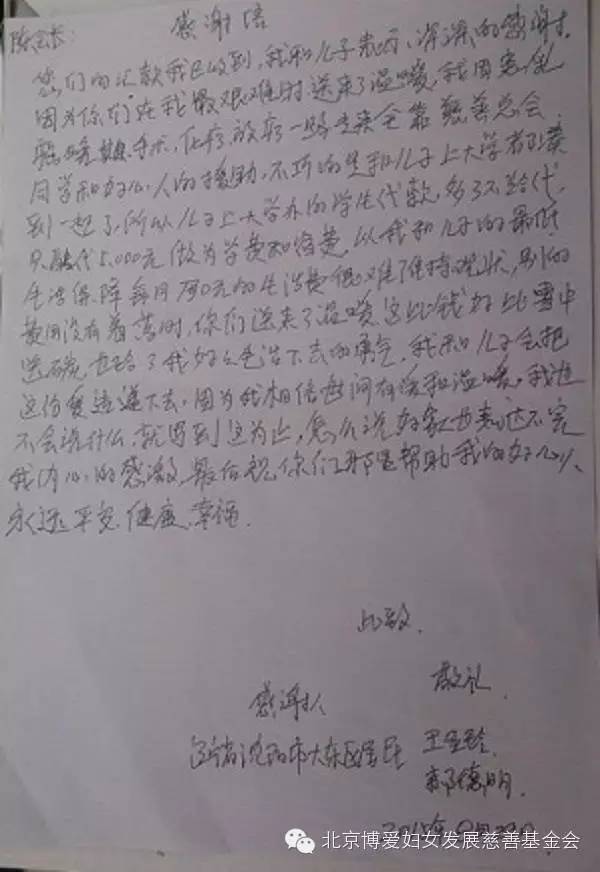 感谢信
陈会长：
您们的汇款我已收到，我和儿子表示，深深的感谢，
因为你们在我最艰难时送来了温暖，我因患乳
腺晚期，手术，化疗，放疗一路走来全靠慈善总会，
同学和好心人的援助，不巧的是和儿子上大学者
到一起了，所以儿子上大学办的学生代款，多了不给代，
只能代5.000元做为学费和宿费，以我和儿子的最低
生活保障每月 元的生活费很难维持现状，别的
费用没有着落时，你们送来了温暖，这比钱好比雪中
送碳，也给了我好好生活下去的勇气，我和儿子会把
这份爱传递下去，因为我相信世间有爱和温暖，我也
不会说什么，就写到这为止，怎么说好象也表达不完
我内心的感激，最后祝，你们那些帮助我的好心人，
永远，平安，健康，幸福．
此致．
敬礼．
感谢人
辽宁省沈阳市大东区居民
王 玲
郭德明
北京博爱妇女发展慈善基金会